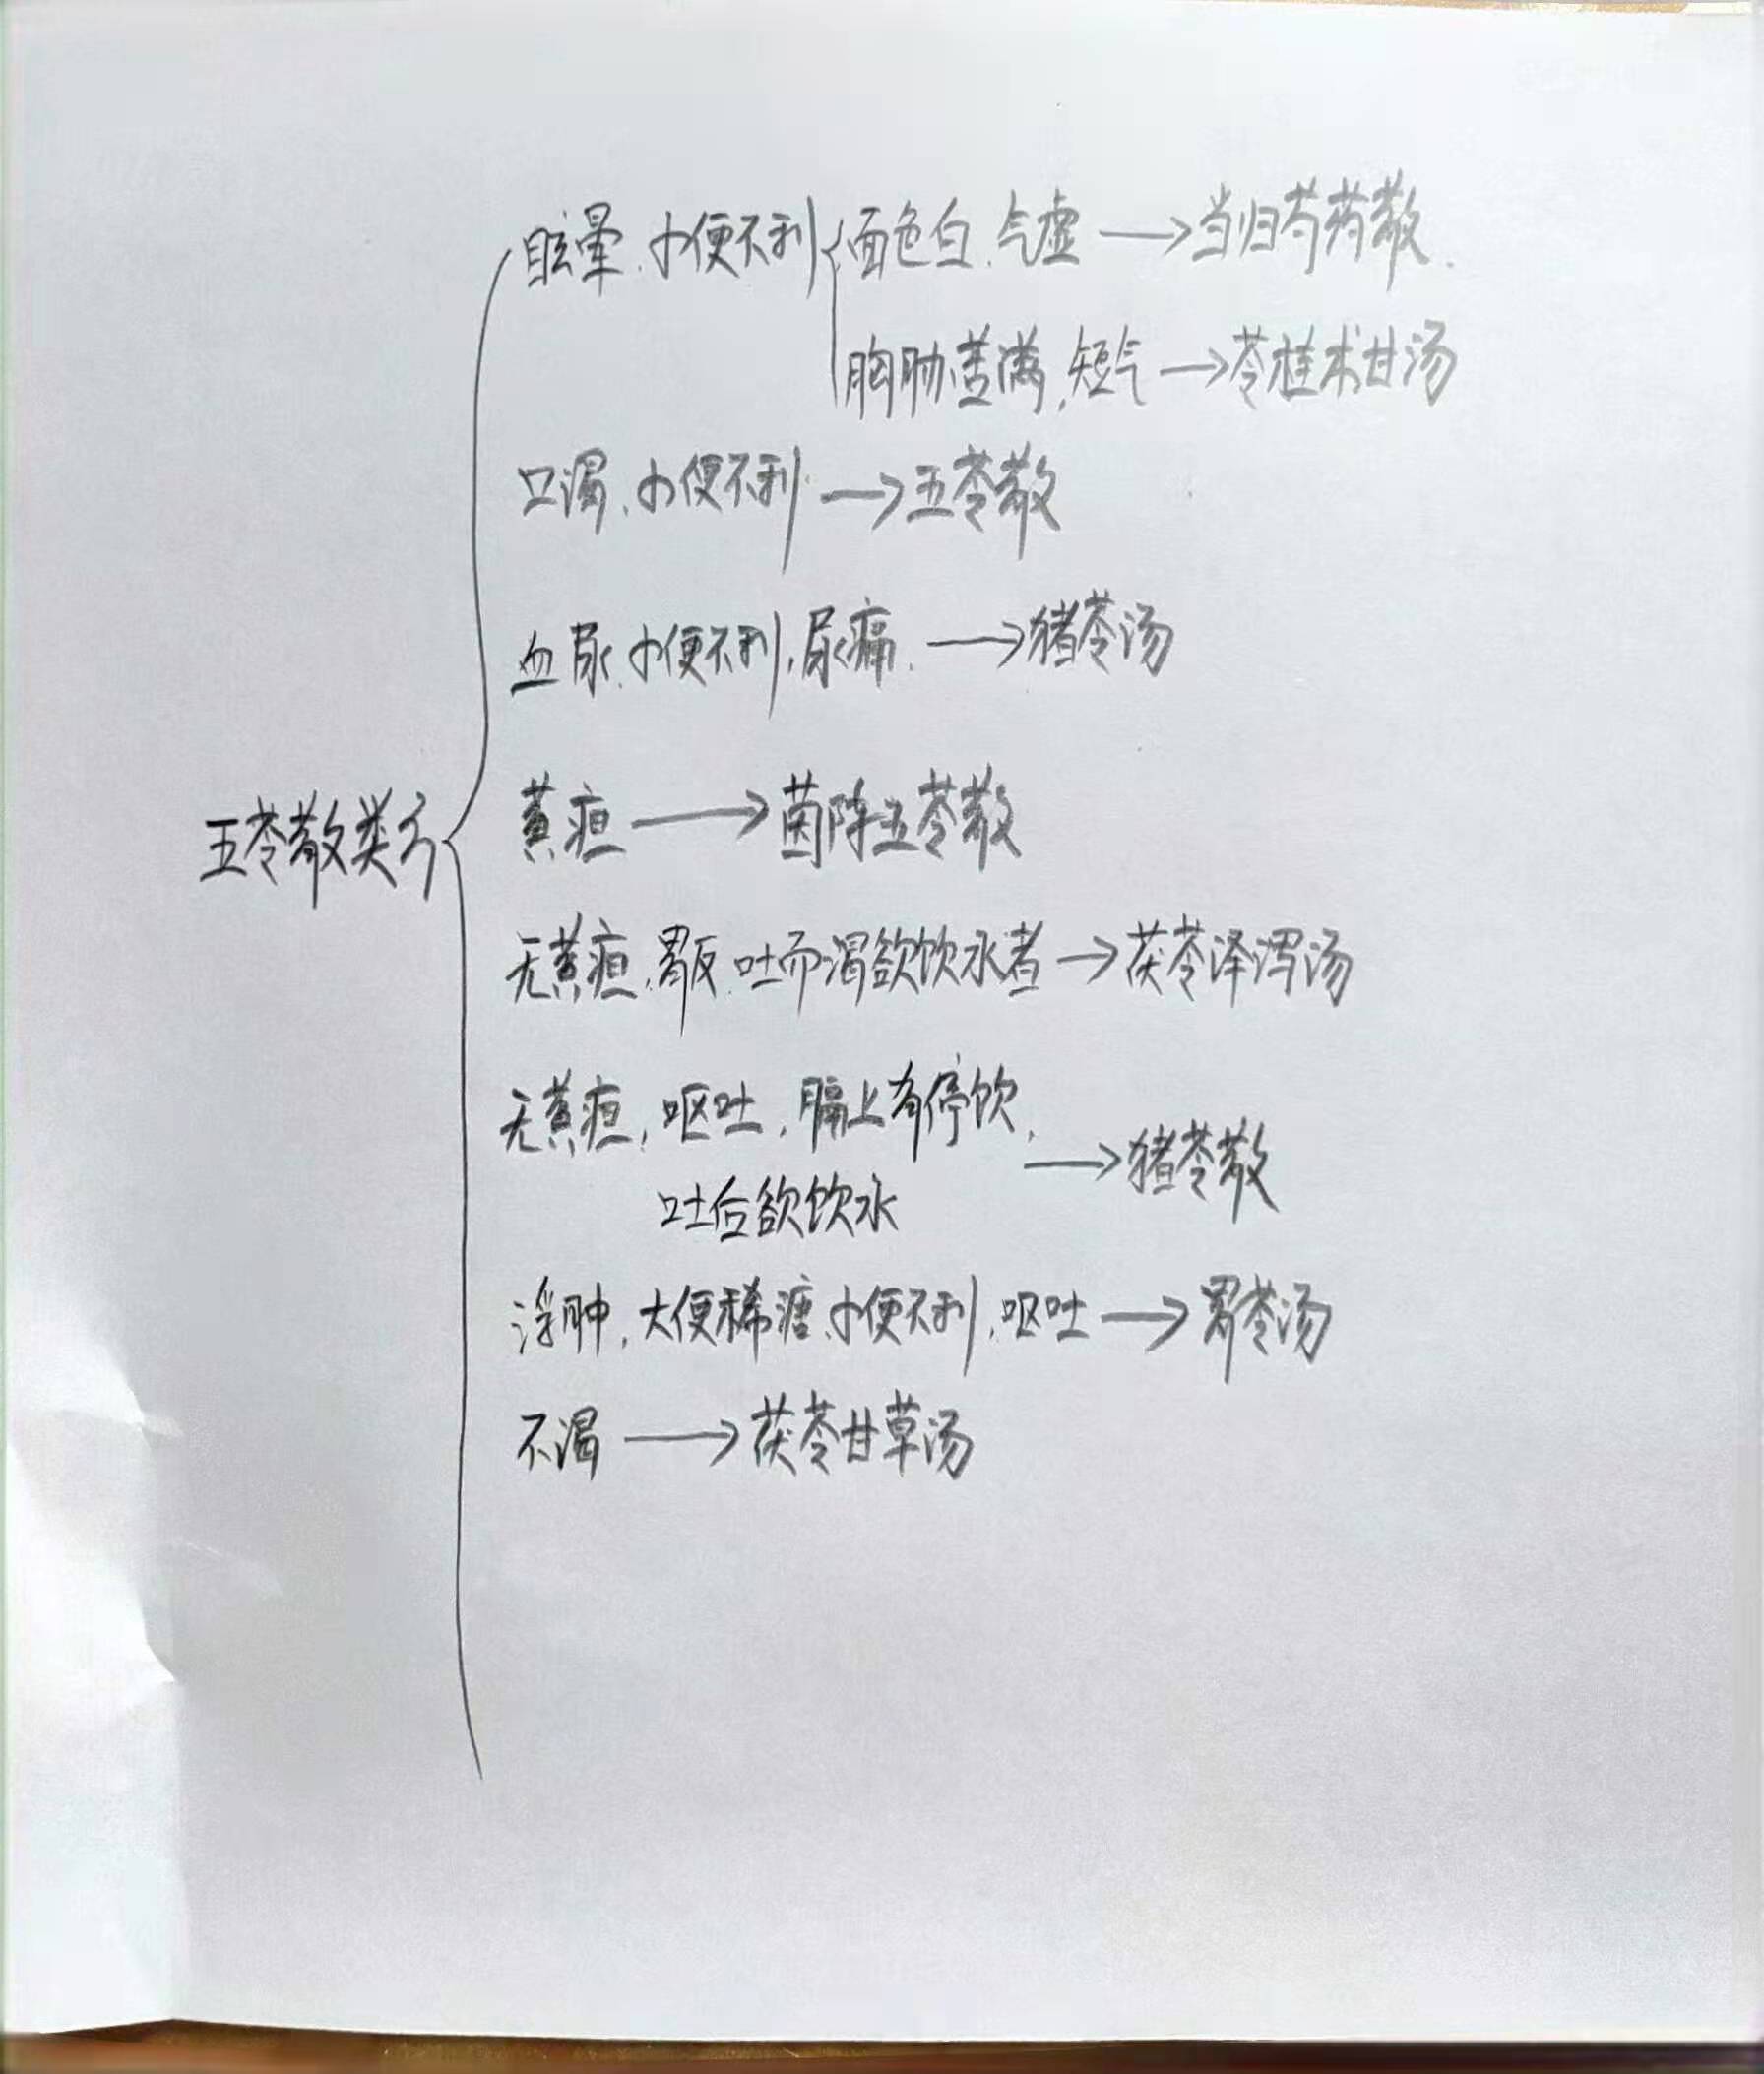 眩晕、小便不利 面色白、气虚 → 当归芍药散.
胸胁苦满,短气 → 苓桂术甘汤
口渴、小便不利 → 五苓散
血尿、小便不利、尿痛. → 猪苓汤
黄疸 → 茵陈五苓散
五苓散类方
无黄疸、胃反、吐而渴欲饮水者 → 茯苓泽泻汤
无黄疸,呕吐,膈上有停饮,
→ 猪苓散
吐后欲饮水
浮肿,大便稀溏、小便不利、呕吐 → 胃苓汤
不渴 → 茯苓甘草汤